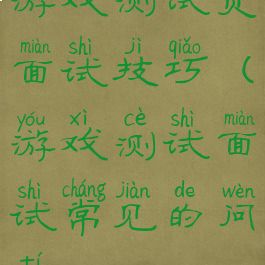 游戏测试员
miàn shì jì qiǎo
面试技巧（
yóu xì cè shì miàn
游戏测试面
shì cháng jiàn de wèn
试常见的问
tí